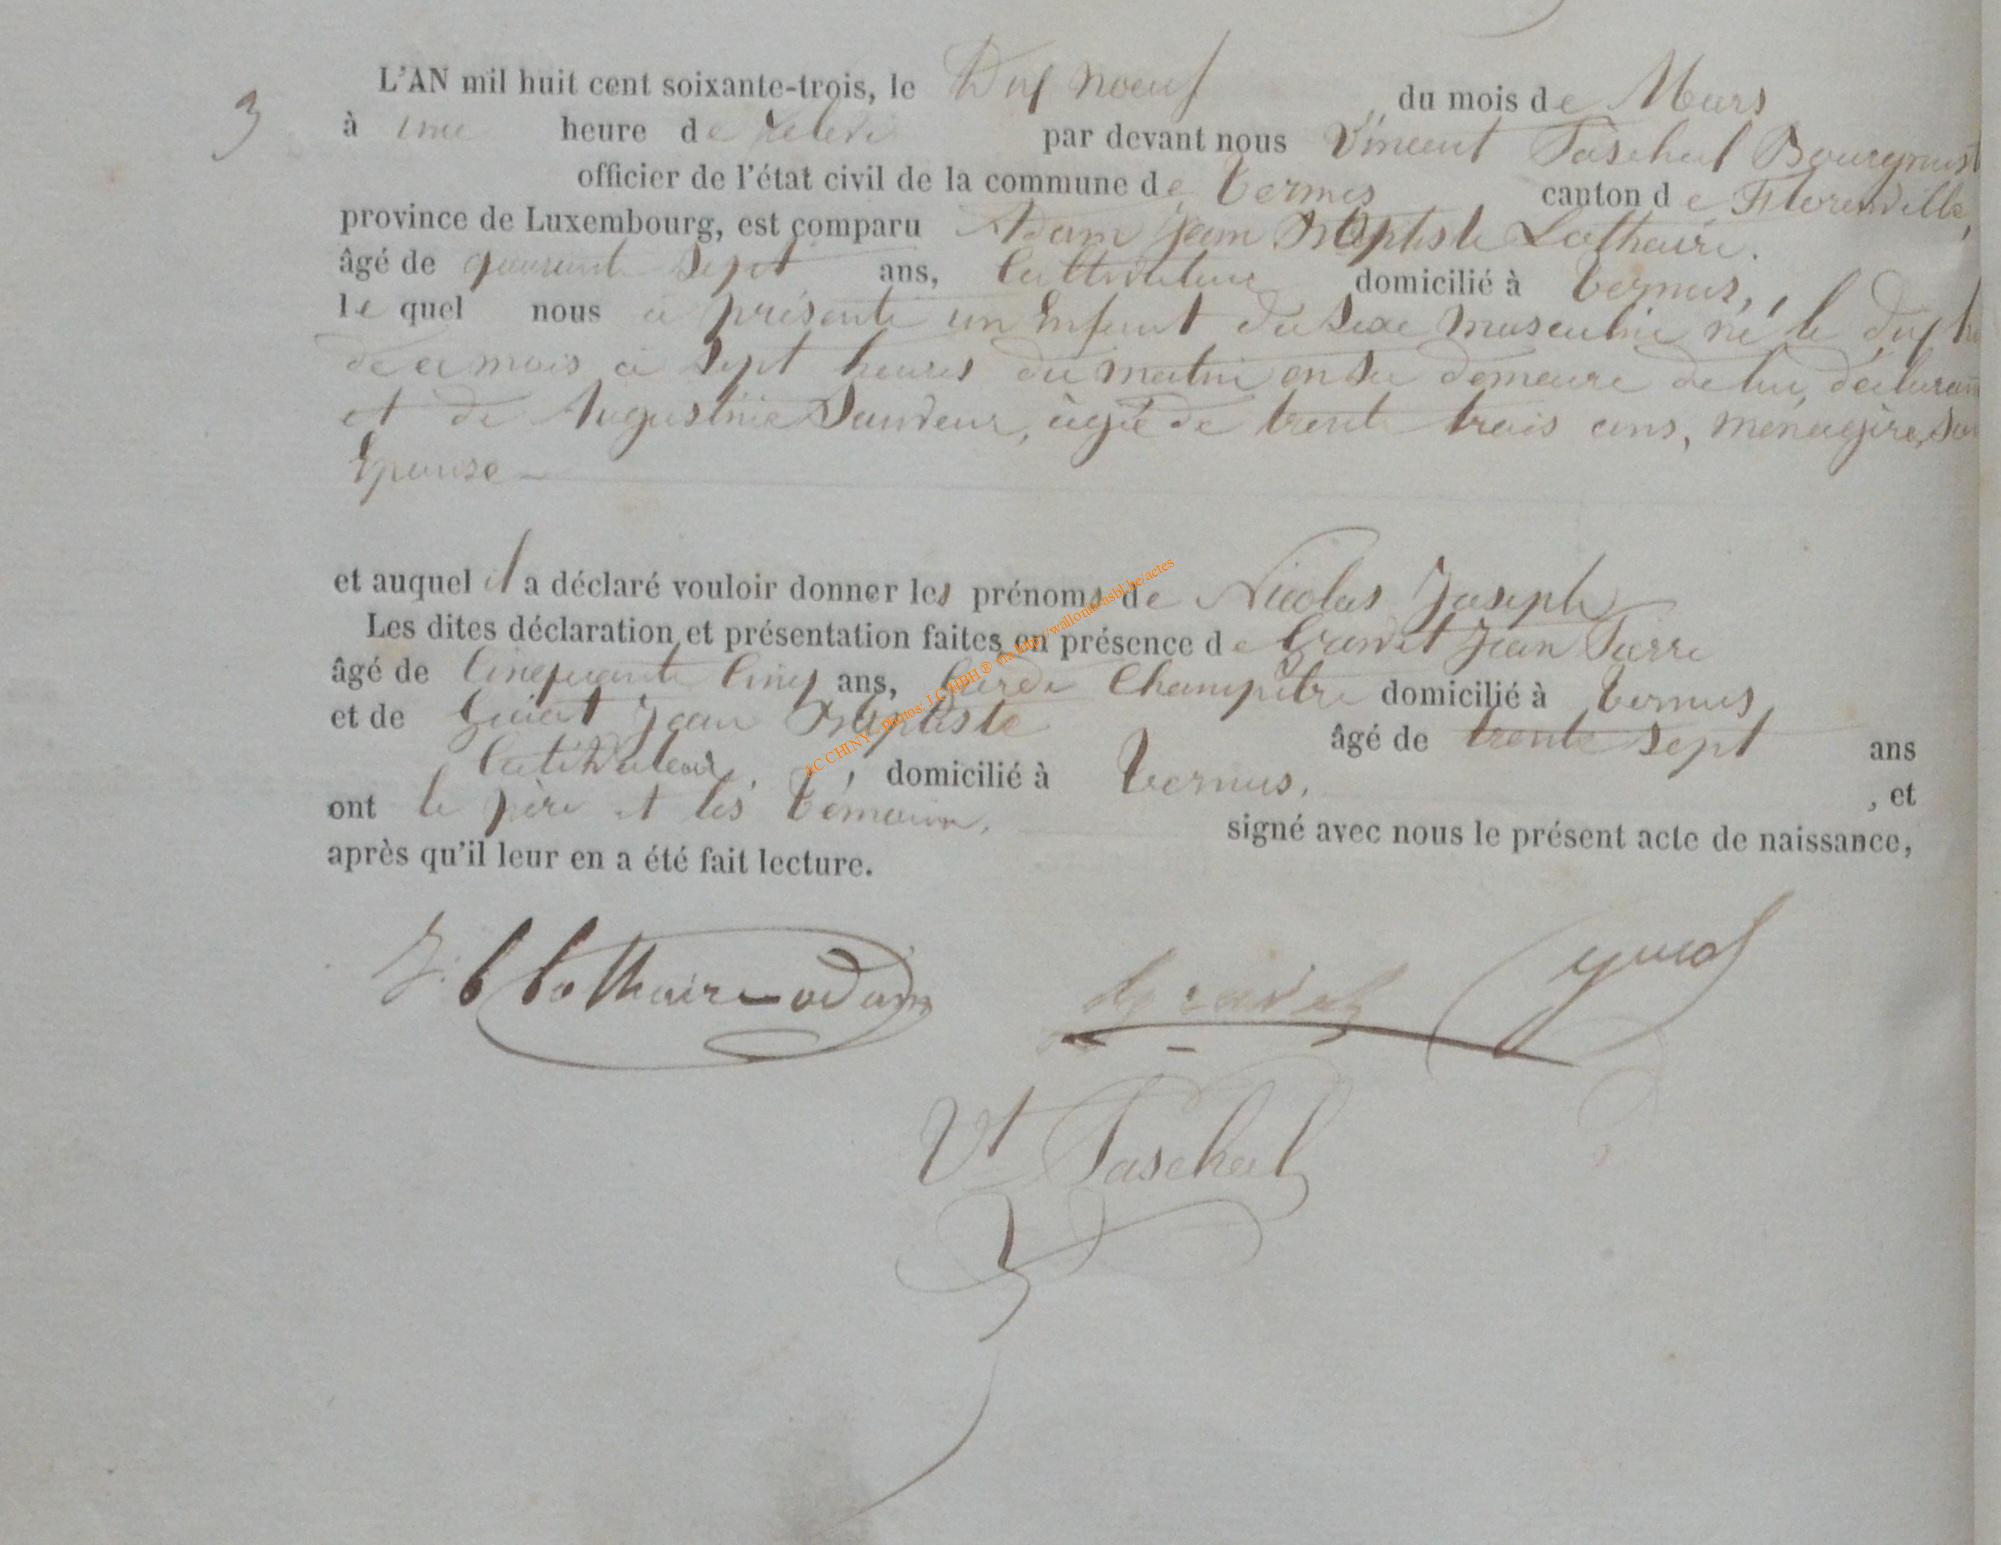 3
L'AN mil huit cent soixante-trois, le Dix noeuf du mois de Mars
à une heure de relevé par devant nous Vincent Paschal Bourgmest
officier de l'état civil de la commune de Termes canton de Florenville,
province de Luxembourg, est comparu Adam Jean Baptiste Lothaire.
âgé de quarante sept ans, Cultivateur domicilié à Termes,
le quel nous a présenté un Enfant du Sexe masculin né le dix
de ce mois à Sept heures du matin en sa demeure de lui, déclaran
et de Augustine Sauveur, agée de trente trois ans, ménagère, son
Epouse
et auquel il a déclaré vouloir donner les prénoms de Nicolas Joseph
Les dites déclaration et présentation faites en présence de Gravet Jean Pierre
âgé de Cinquante Cinq ans, Garde Champêtre domicilié à Termes
et de Guiot Jean Baptiste âgé de trente sept ans
Cultivateur, domicilié à Termes, , et
ont le père et les témoins, signé avec nous le présent acte de naissance,
après qu'il leur en a été fait lecture.
J. b Lothaire adam
gravet
guiot
Vt Paschal